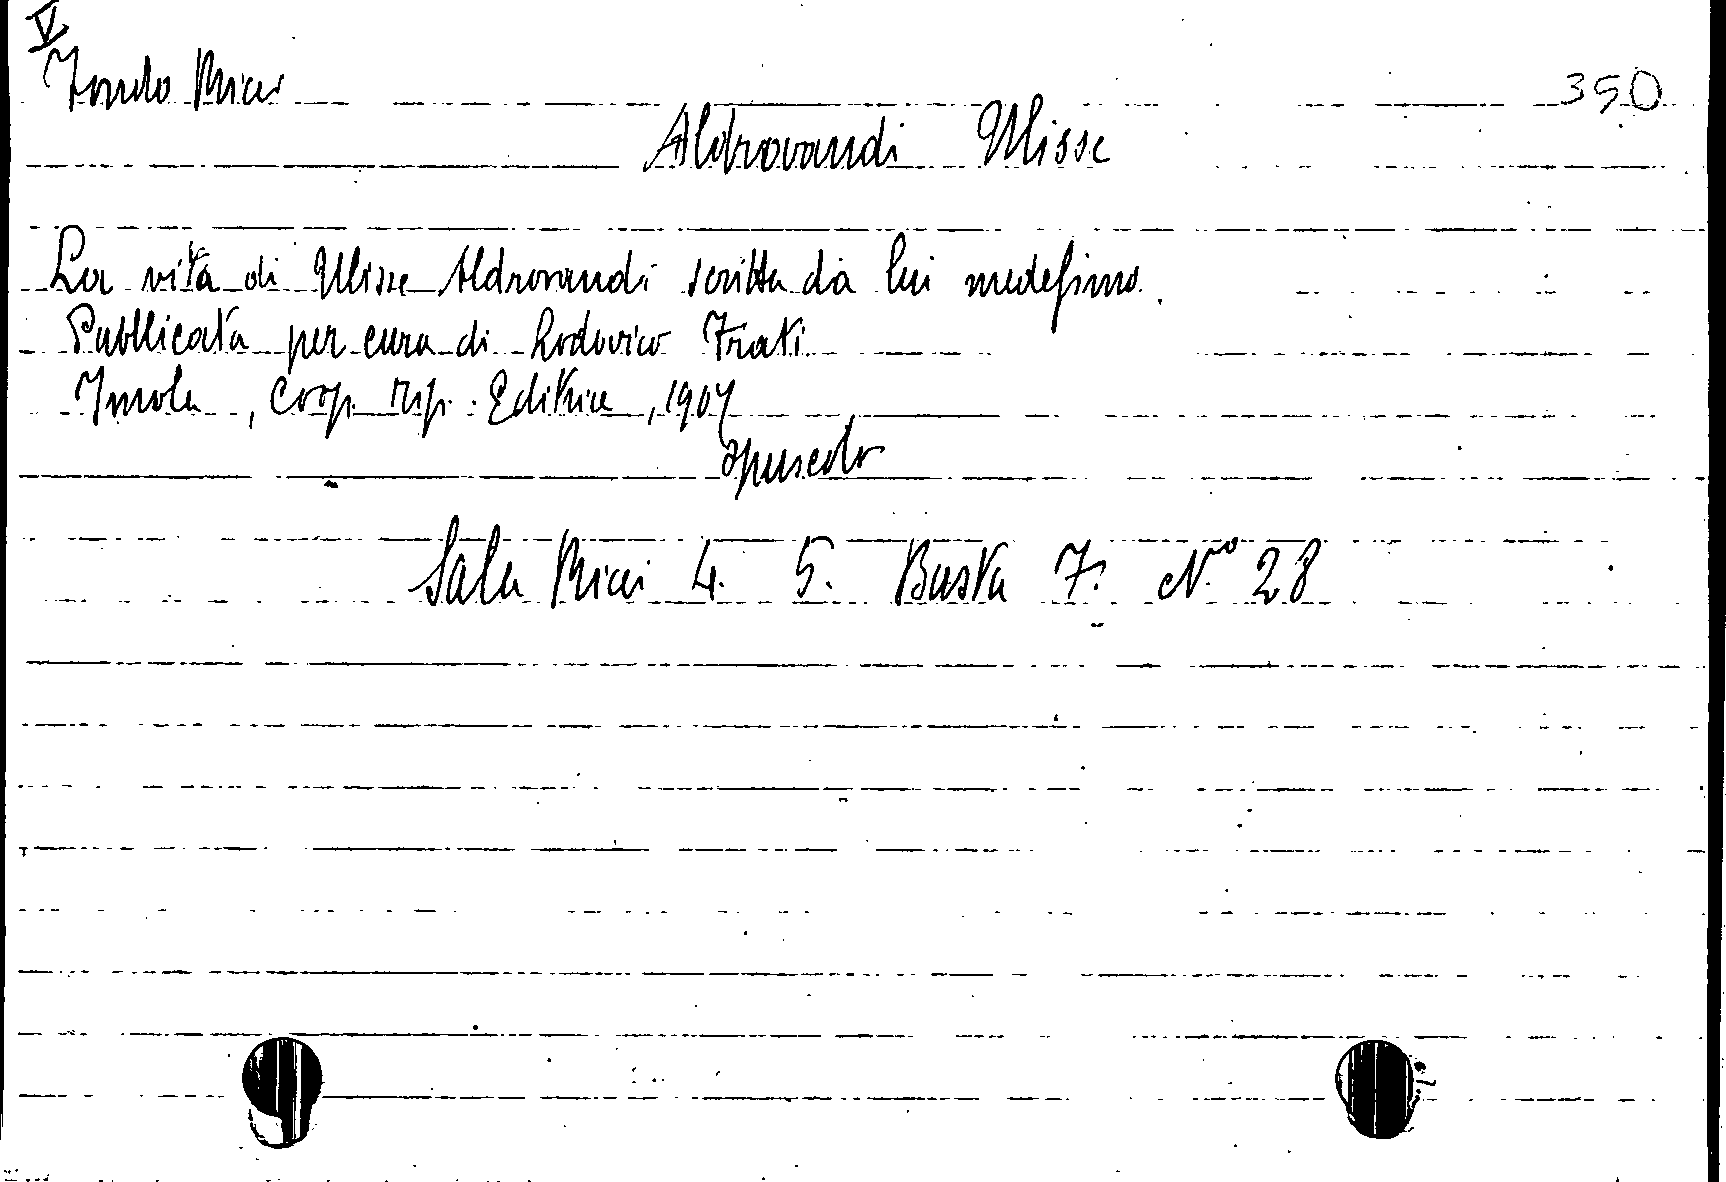 V
Fondo Ricci
350
Aldrovandi Ulisse
La vita di Ulisse Aldrovandi scritta da lui medesimo.
Pubblicata per cura di Lodovico Frati
Imola, Coop. Tip. Editrice, 1907
opuscolo
Sala Ricci 4. 5. Busta 7. N.º 28